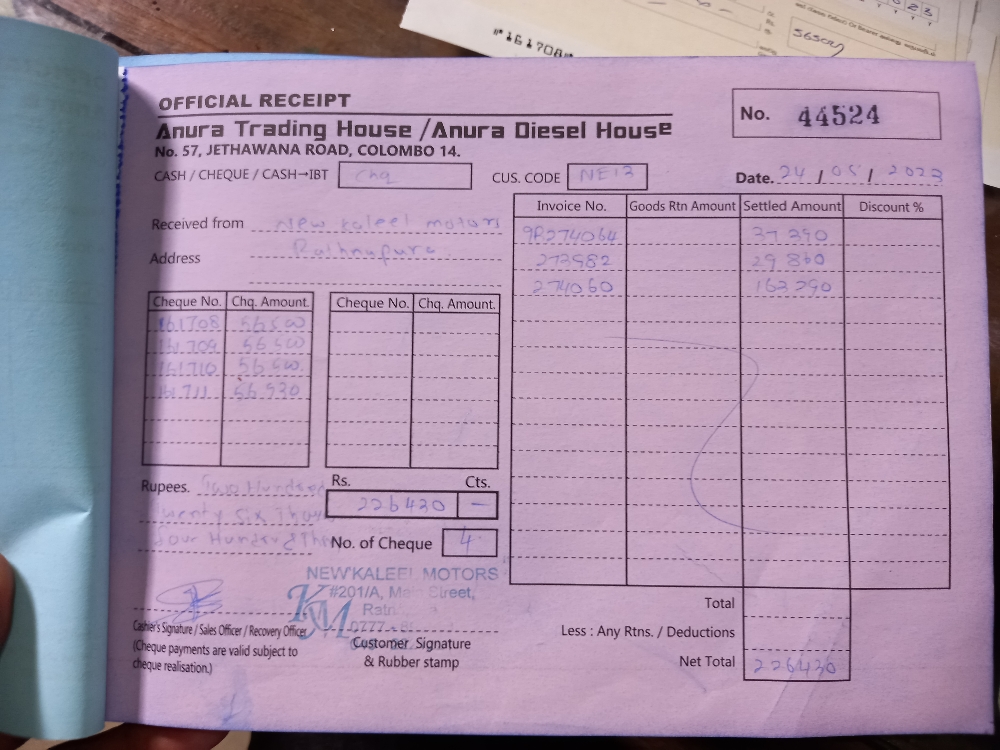 56500
"161708"
OFFICIAL RECEIPT
Anura Trading House /Anura Diesel House
No. 57, JETHAWANA ROAD, COLOMBO 14.
No. 44524
CASH / CHEQUE / CASH→IBT Chq
CUS. CODE NE13
Date. 24 / 05 / 2023
Received from New Kaleel motors
Address Rathnapura.
Invoice No. Goods Rtn Amount Settled Amount Discount %
9R274064 37 390
273982
274060
Cheque No. Chq. Amount. Cheque No. Chq. Amount.
161708 56500
161709 56500
161710 56500.
161711 56930
Rupees. Two Hundred
Twenty Six Thous
Four Hundred Thi
Rs. Cts.
226430 —
No. of Cheque 4
NEW KALEEL MOTORS
#201/A, Main Street,
Ratn
0777
KM
Cashier's Signature / Sales Officer / Recovery Officer
(Cheque payments are valid subject to
cheque realisation.)
Customer Signature
& Rubber stamp
Total
Less : Any Rtns. / Deductions
Net Total 226430